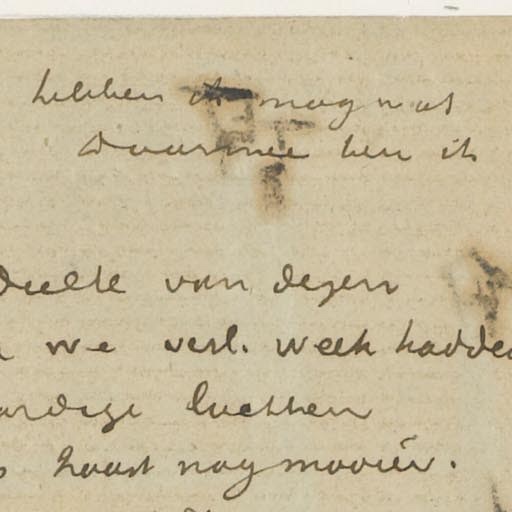 hebben ik mag wat
Daarmee ben ik
van dezen
we verl. week hadden
aardige luchten
haast nog mooier.